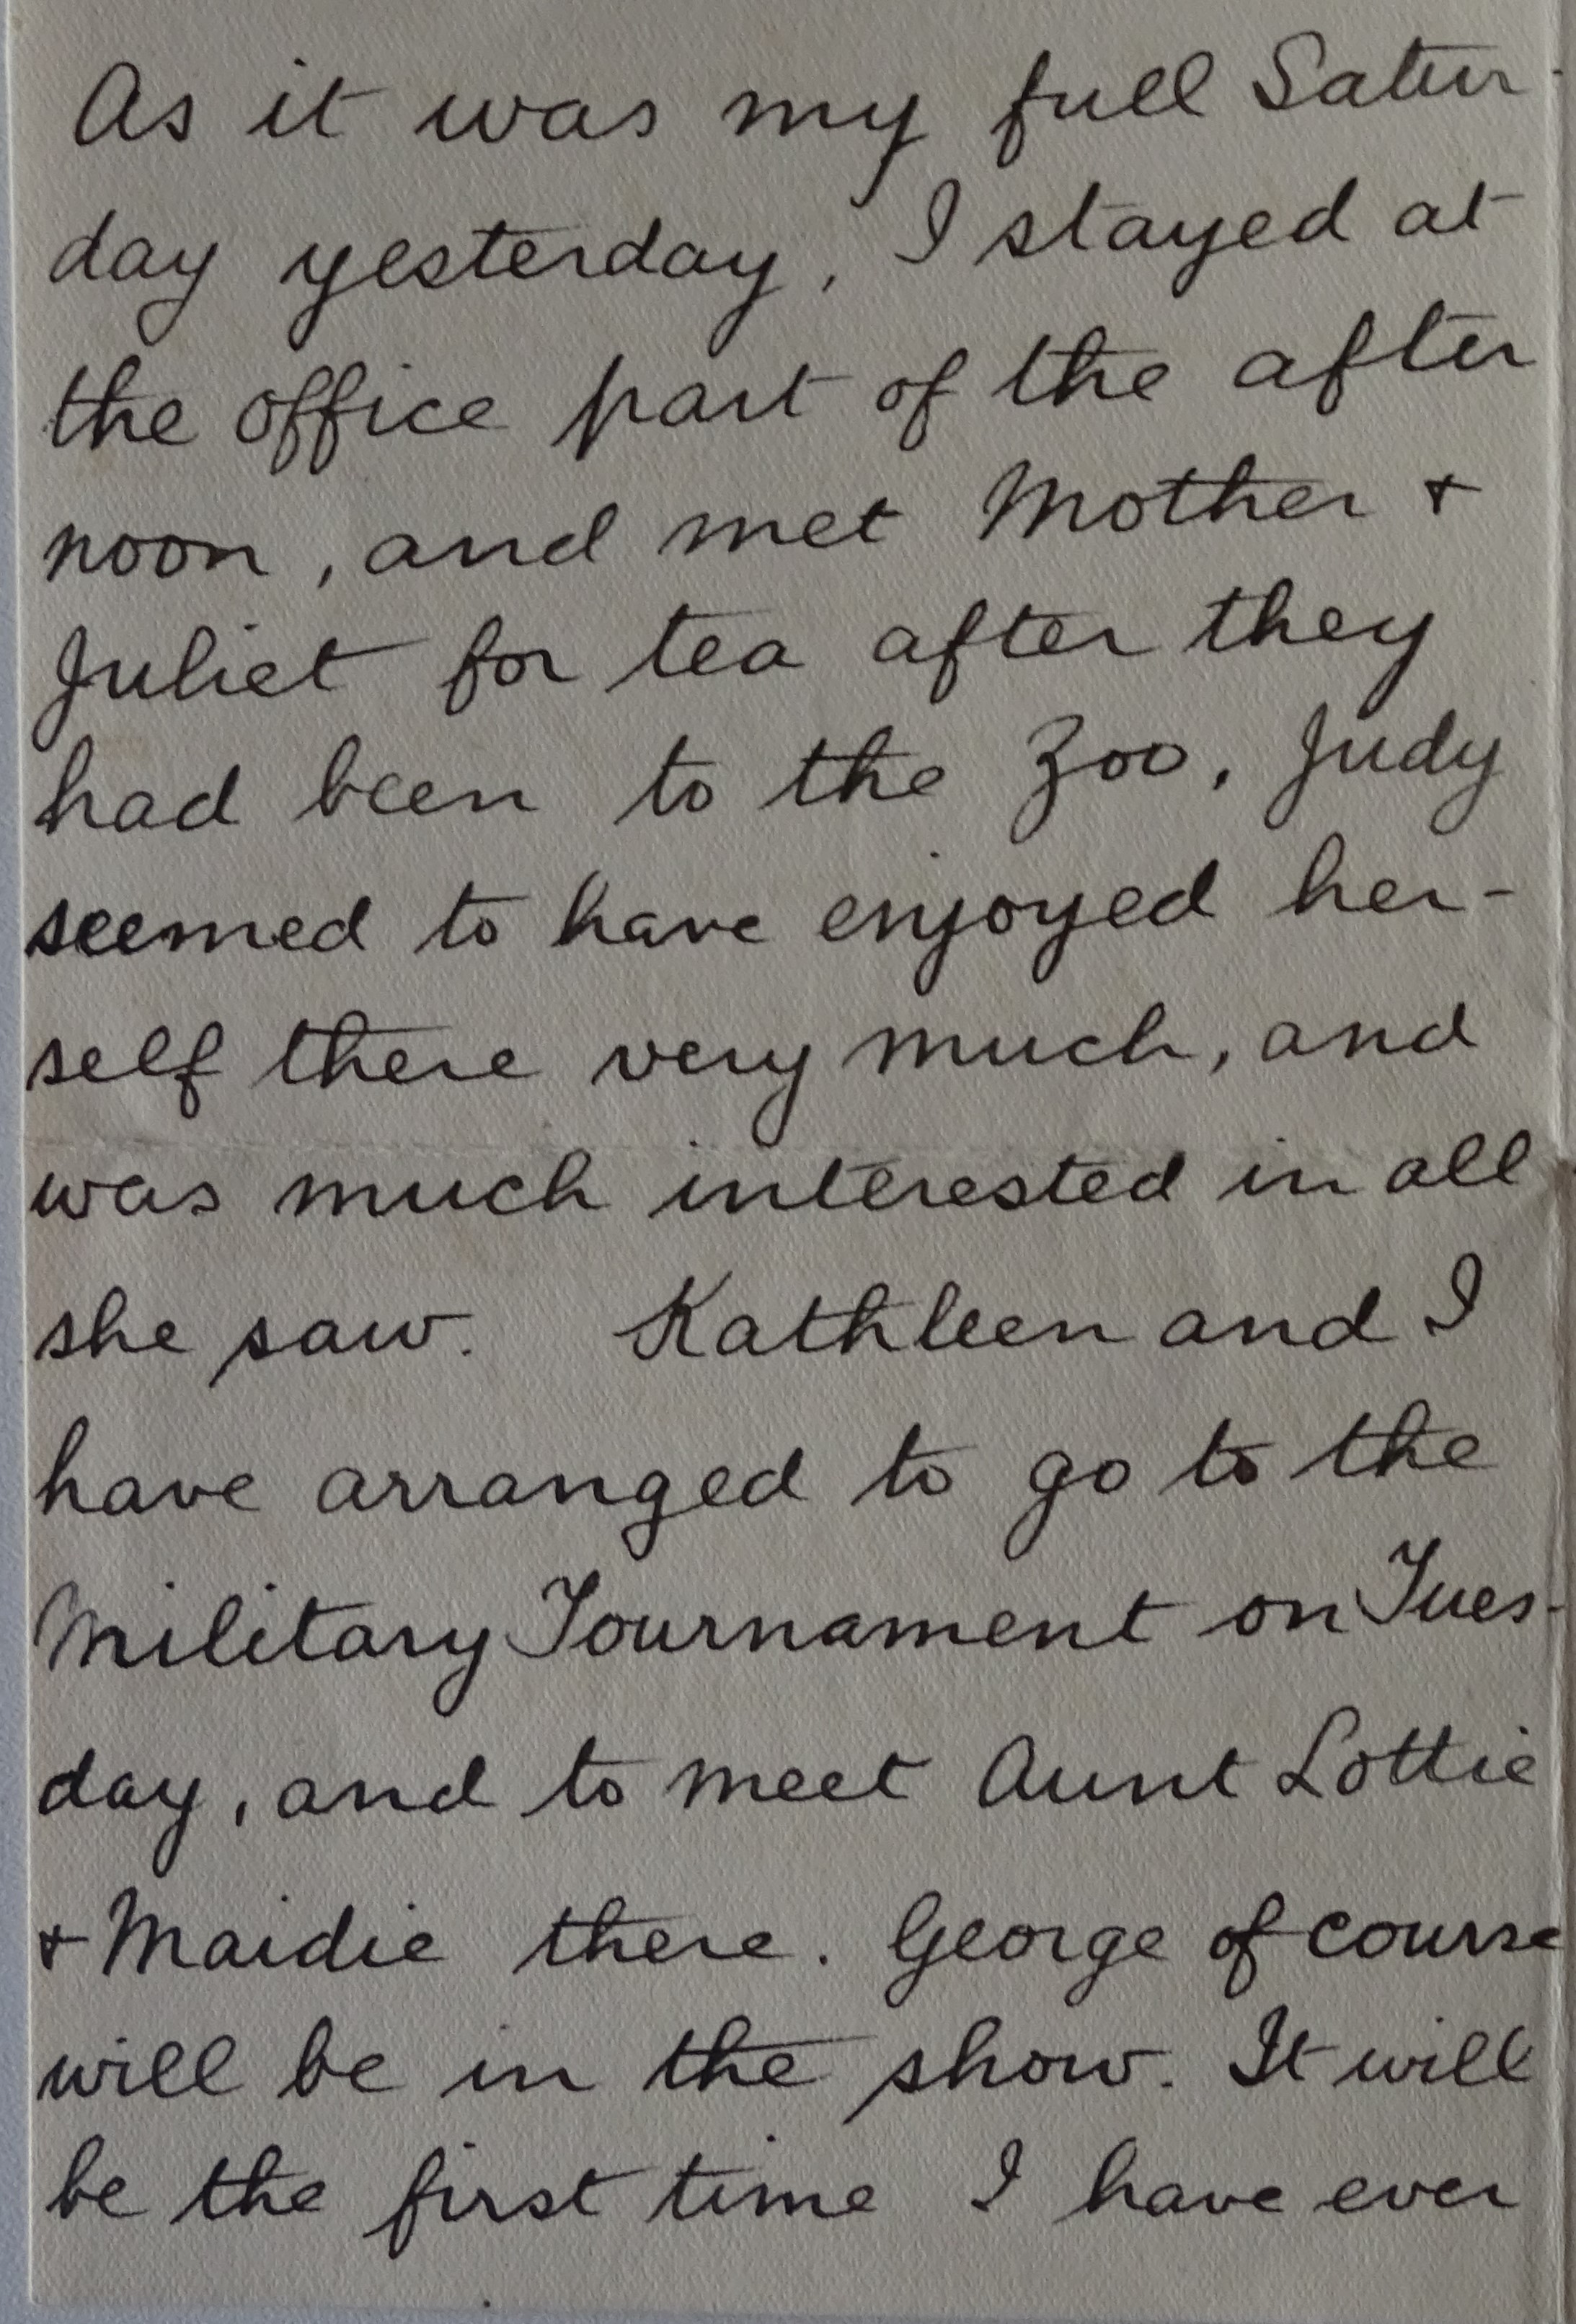 As it was my full Satur-
day yesterday, I stayed at
the office part of the after
noon, and met Mother +
Juliet for tea after they
had been to the Zoo. Judy
seemed to have enjoyed her-
self there very much, and
was much interested in all
she saw. Kathleen and I
have arranged to go to the
Military Tournament on Tues-
day, and to meet Aunt Lottie
+ Maidie there. George of course
will be in the show. It will
be the first time I have ever